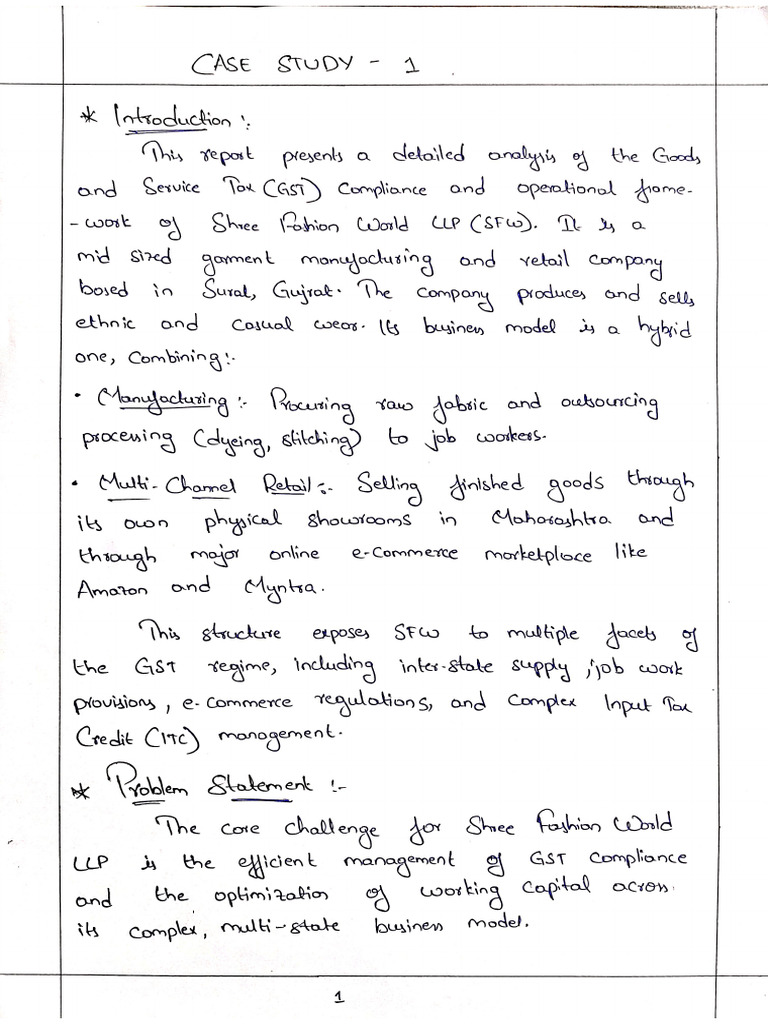 CASE STUDY - 1
* Introduction :-
This report presents a detailed analysis of the Goods
and Service Tax (GST) Compliance and operational frame-
-work of Shree Fashion World LLP (SFW). It is a
mid sized garment manufacturing and retail company
based in Surat, Gujrat. The company produces and sells
ethnic and casual wear. Its business model is a hybrid
one, combining :-
• Manufacturing :- Procuring raw fabric and outsourcing
processing (dyeing, stitching) to job workers.
• Multi-Channel Retail :- Selling finished goods through
its own physical showrooms in Maharashtra and
through major online e-commerce marketplace like
Amazon and Myntra.
This structure exposes SFW to multiple facets of
the GST regime, including inter-state supply, job work
provisions, e-commerce regulations, and complex Input Tax
Credit (ITC) management.
* Problem Statement :-
The core challenge for Shree Fashion World
LLP is the efficient management of GST compliance
and the optimization of working capital across
its complex, multi-state business model.
1